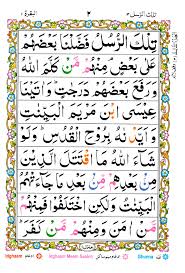 تلك الرسل ٣ ٢ البقرة
تِلْكَ الرُّسُلُ فَضَّلْنَا بَعْضَهُمْ
عَلٰى بَعْضٍ مِنْهُمْ مَّنْ كَلَّمَ اللّٰهُ
وَرَفَعَ بَعْضَهُمْ دَرَجٰتٍ وَاٰتَيْنَا
عِيْسَى ابْنَ مَرْيَمَ الْبَيِّنٰتِ
وَاَيَّدْنٰهُ بِرُوْحِ الْقُدُسِ وَلَوْ
شَآءَ اللّٰهُ مَا اقْتَتَلَ الَّذِيْنَ
مِنْ بَعْدِهِمْ مِّنْ بَعْدِ مَا جَآءَتْهُمُ
الْبَيِّنٰتُ وَلٰكِنِ اخْتَلَفُوْا فَمِنْهُمْ
مَّنْ اٰمَنَ وَمِنْهُمْ مَّنْ كَفَرَ وَلَوْ
Idghaam Idghaam Meem Saakin Ghunna